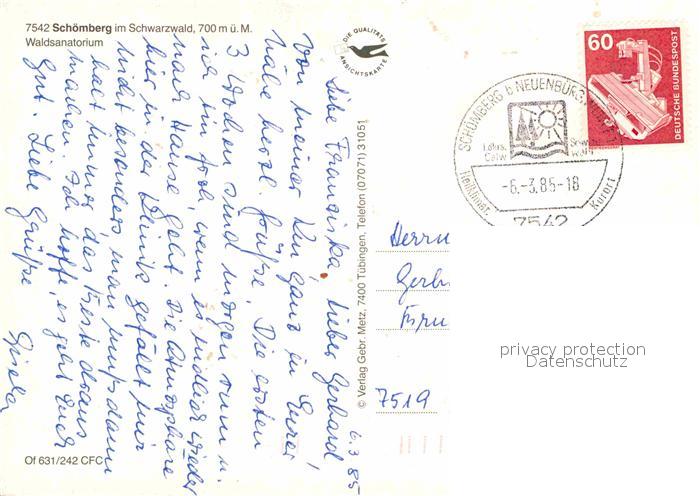 7542 Schömberg im Schwarzwald, 700 m ü. M.
Waldsanatorium
DIE QUALITÄTS
ANSICHTSKARTE
Liebe Franziska, lieber Gerhard!
Von meiner Kur ganz in Eurer
Nähe herzl. Grüße. Die ersten
3 Wochen sind morgen rum u.
ich bin froh, wenn es endlich wieder
nach Hause geht. Die Atmosphäre
hier in der Klinik gefällt mir
nicht besonders, man muß dann
halt immer das Beste draus
machen. Ich hoffe, es geht Euch
gut. Liebe Grüße
Gisela
6.3.85
Of 631/242 CFC
© Verlag Gebr. Metz, 7400 Tübingen, Telefon (07071) 31051
SCHÖMBERG b NEUENBÜRG
Ldkrs.
Calw
Heilklimat. Kurort
-6.-3.85-18
7542
60
DEUTSCHE BUNDESPOST
Herrn
7519
privacy protection
Datenschutz